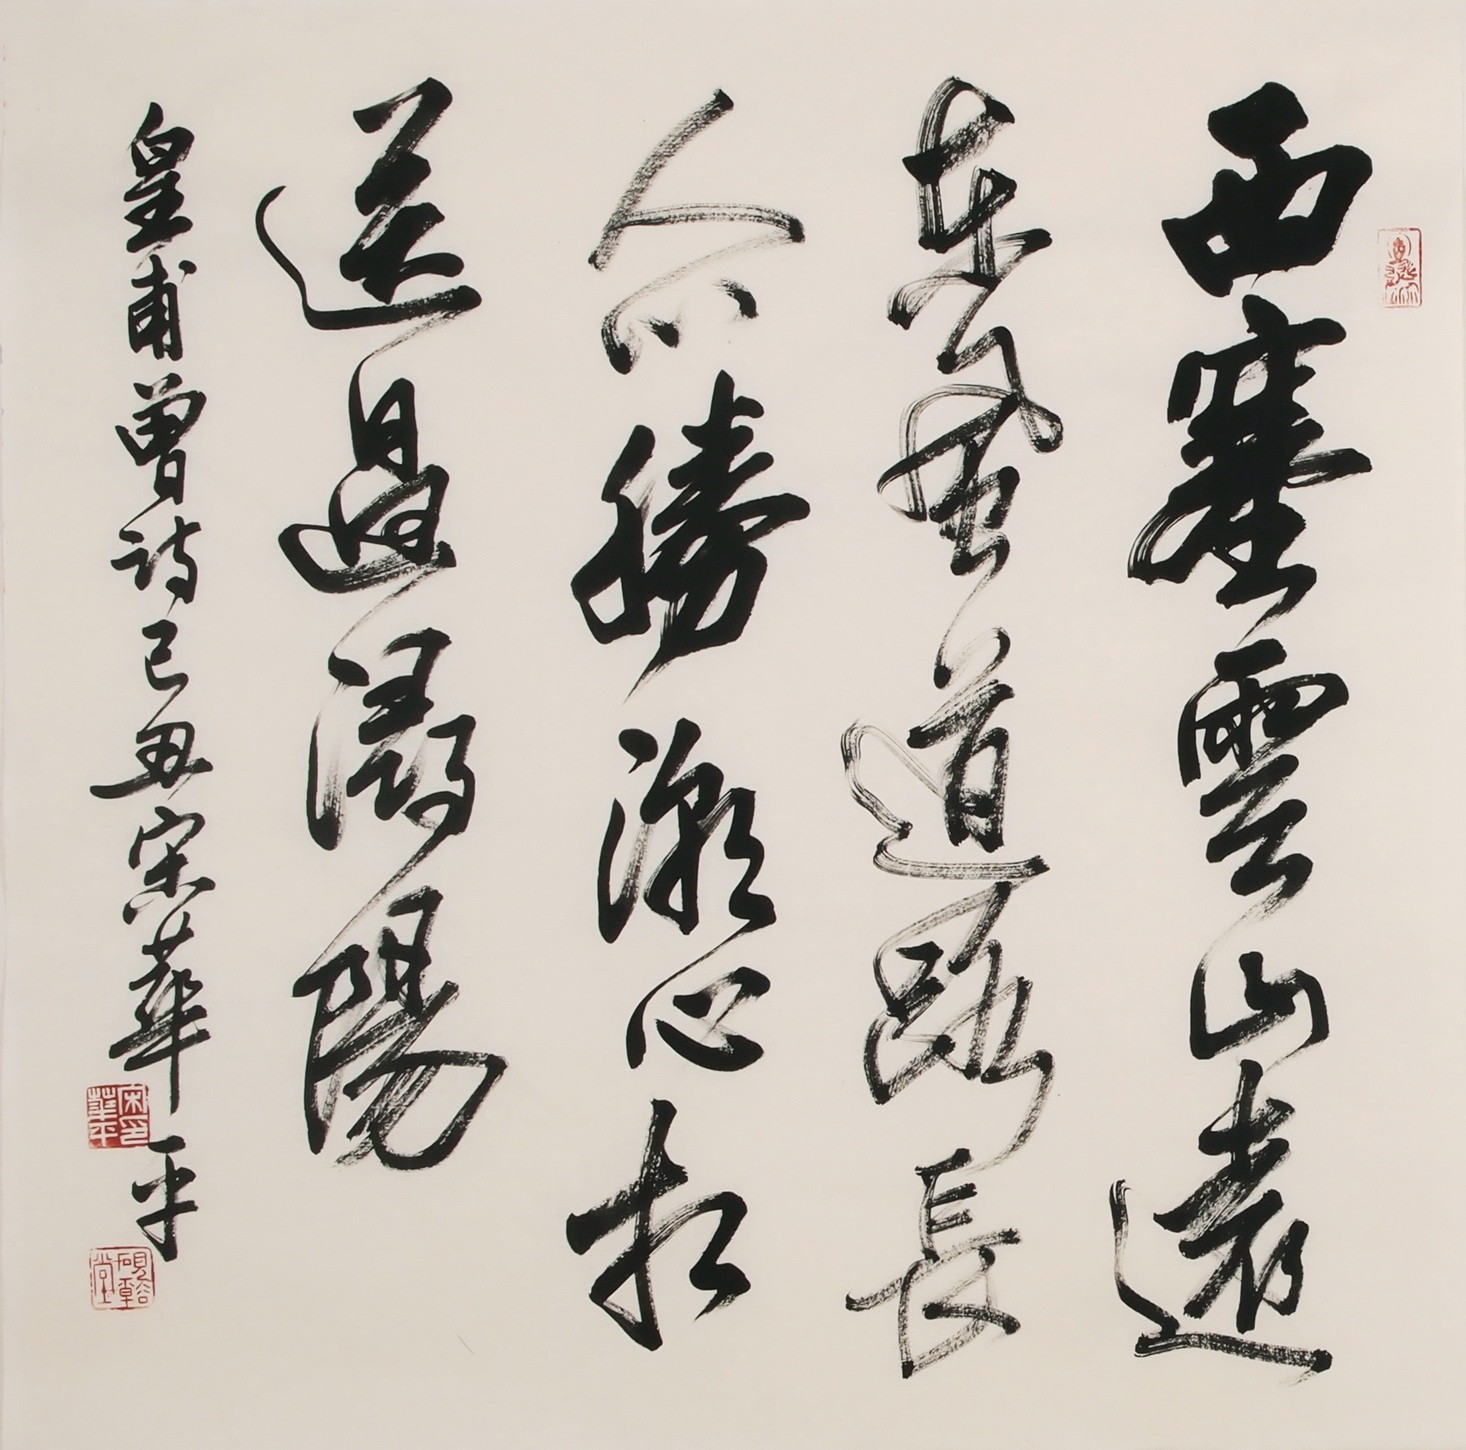 西塞雲山遠
東風道路長
人心勝潮水相
送過潯陽
皇甫曾詩己丑宋華平
宋印華平